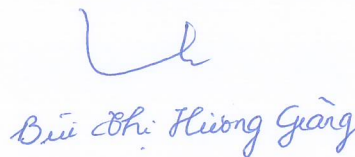 Bùi Thị Hương Giang